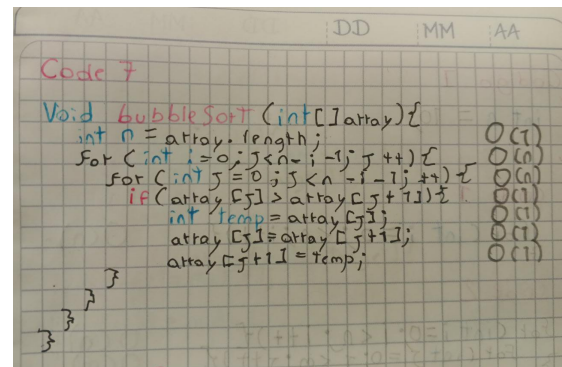 DD MM AA
Code 7
Void bubbleSort (int[] array){
int n = array.length; O(1)
for (int i=0; j<n-i-1; j++){ O(n)
for (int j=0; j<n-i-1; ++){ O(n)
if (array[j] > array[j+1]){ O(1)
int temp = array[j]; O(1)
array[j] = array[j+1]; O(1)
array[j+1] = temp; O(1)
}
}
}
}